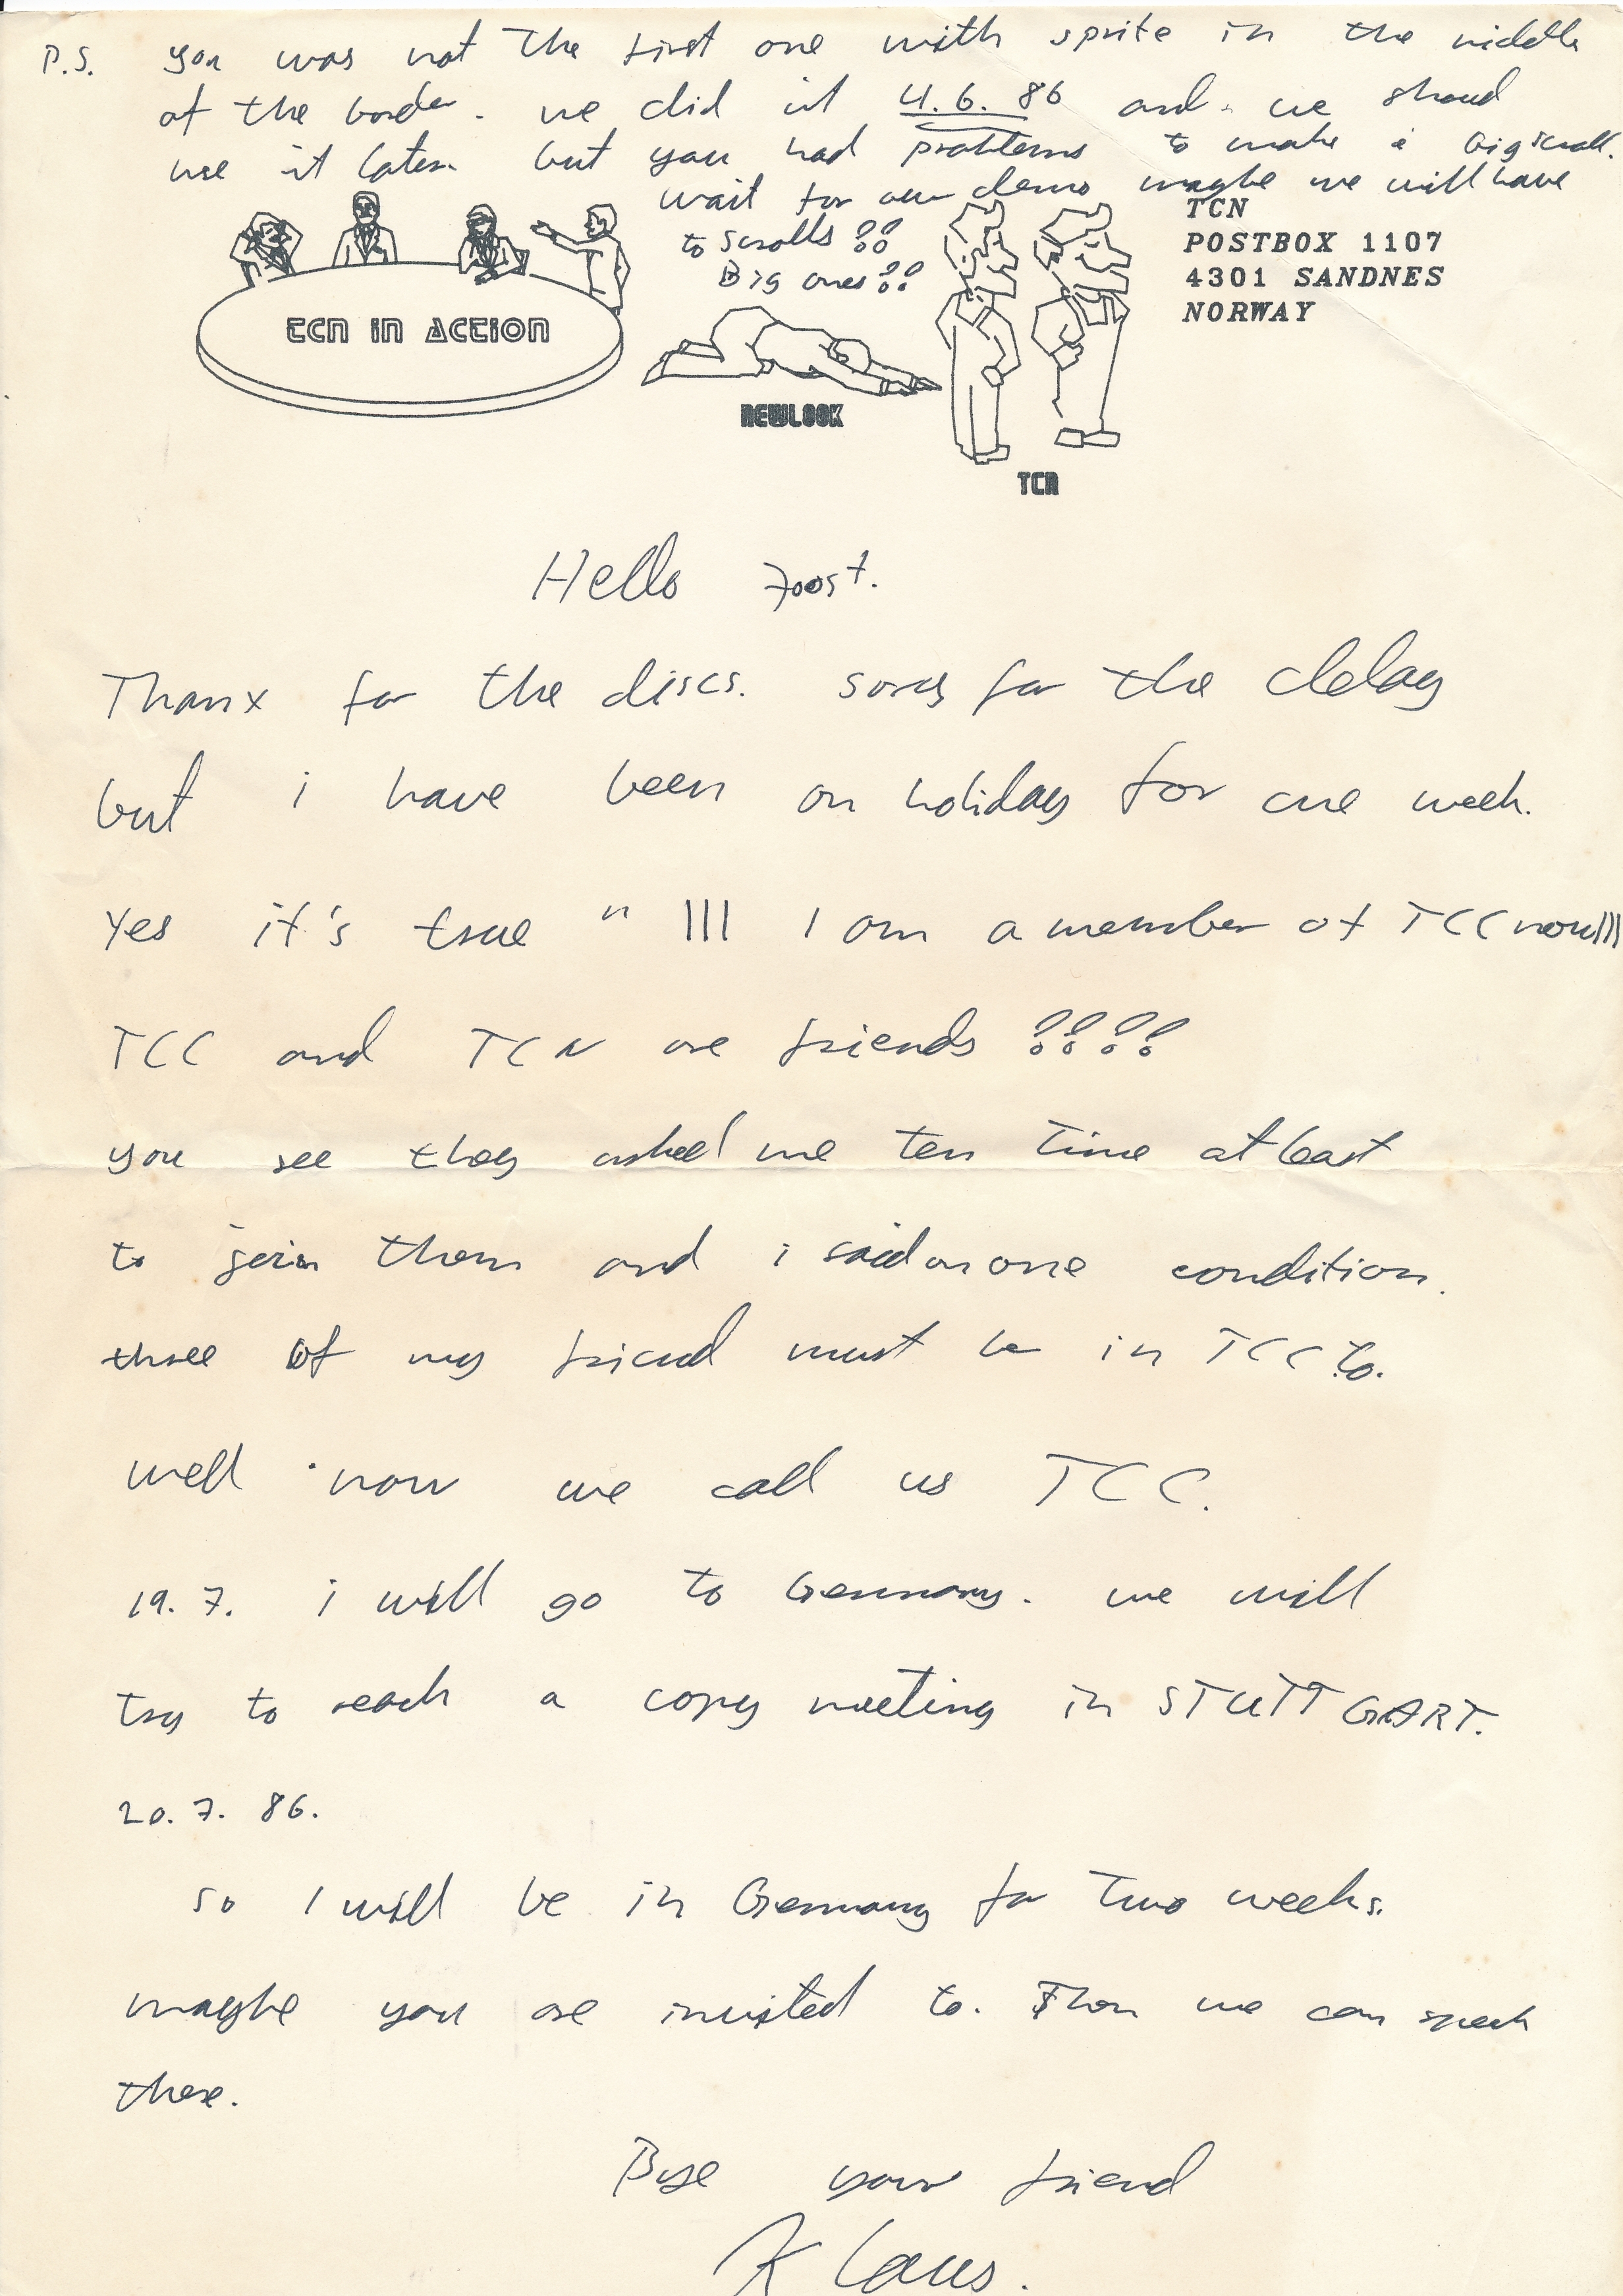 P.S. you was not the first one with sprite in the middle
of the border. we did it 4.6.86 and we shoud
use it later. but you had problems to make a big scroll.
wait for our demo maybe we will have
to scrolls ??
Big ones ??
TCN
POSTBOX 1107
4301 SANDNES
NORWAY
TCN IN ACTION
NEWLOOK
TCN
Hello Joost.
Thanx for the discs. sorry for the delay
but i have been on holiday for one week.
Yes it's true " ||| I am a member of TCC now |||
TCC and TCN are friends ????
you see they asked me ten time at least
to join them and i said on one condition.
three of my friend must be in TCC to.
well now we call us TCC.
19.7. i will go to Germany. we will
try to reach a copy meeting in STUTTGART.
20.7. 86.
so I will be in Germany for two weeks.
maybe you are invited to. Then we can speek
there.
Bye your friend
Klaus.